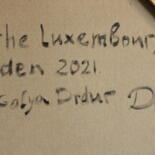 the Luxembour
den 2021.
Sofya Drdur D